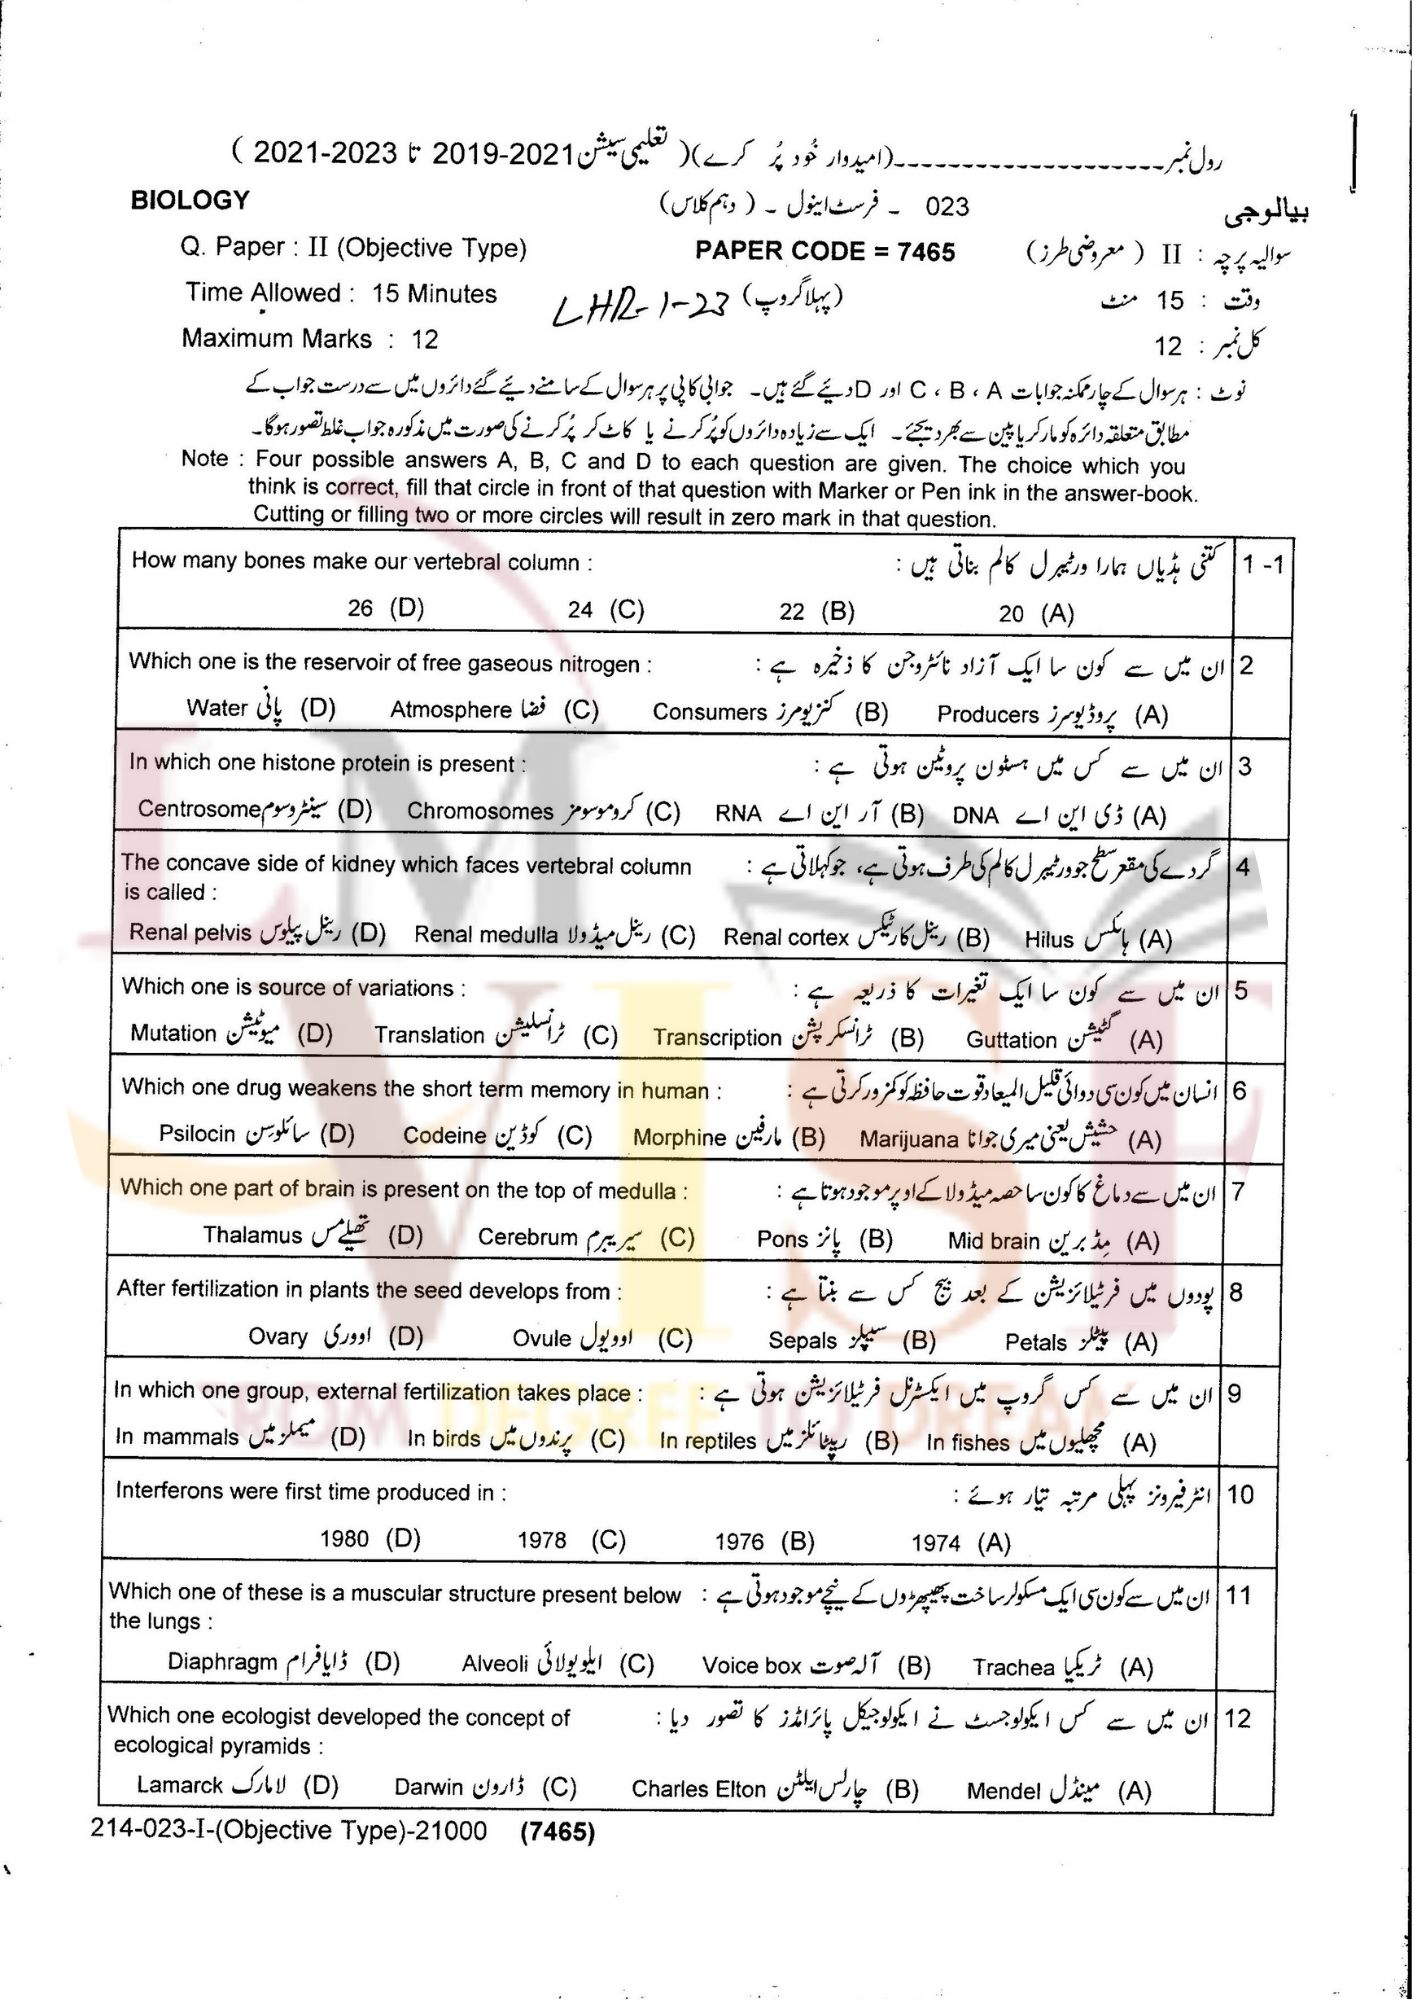 رول نمبر--------------------(امیدوار خُود پُر کرے)( تعلیمی سیشن 2021-2019 تا 2023-2021 )
BIOLOGY 023 ۔ فرسٹ اینول ۔ ( دہم کلاس) بیالوجی
Q. Paper : II (Objective Type) PAPER CODE = 7465 سوالیہ پرچہ : II ( معروضی طرز)
Time Allowed : 15 Minutes LHR-1-23 (پہلا گروپ) وقت : 15 منٹ
Maximum Marks : 12 کل نمبر : 12
نوٹ : ہر سوال کے چار ممکنہ جوابات A ، B ، C اور D دیئے گئے ہیں۔ جوابی کاپی پر ہر سوال کے سامنے دیئے گئے دائروں میں سے درست جواب کے
مطابق متعلقہ دائرہ کو مارکر یا پین سے بھر دیجئے۔ ایک سے زیادہ دائروں کو پُر کرنے یا کاٹ کر پُر کرنے کی صورت میں مذکورہ جواب غلط تصور ہوگا۔
Note : Four possible answers A, B, C and D to each question are given. The choice which you
think is correct, fill that circle in front of that question with Marker or Pen ink in the answer-book.
Cutting or filling two or more circles will result in zero mark in that question.
How many bones make our vertebral column : کتنی ہڈیاں ہمارا ورٹیبرل کالم بناتی ہیں : 1 -1
26 (D) 24 (C) 22 (B) 20 (A)
Which one is the reservoir of free gaseous nitrogen : ان میں سے کون سا ایک آزاد نائٹروجن کا ذخیرہ ہے : 2
Water پانی (D) Atmosphere فضا (C) Consumers کنزیومرز (B) Producers پروڈیوسرز (A)
In which one histone protein is present : ان میں سے کس میں ہسٹون پروٹین ہوتی ہے : 3
Centrosome سینٹروسوم (D) Chromosomes کروموسومز (C) RNA آر این اے (B) DNA ڈی این اے (A)
The concave side of kidney which faces vertebral column گردے کی مقعر سطح جو ورٹیبرل کالم کی طرف ہوتی ہے، جو کہلاتی ہے : 4
is called :
Renal pelvis رینل پیلوس (D) Renal medulla رینل میڈولا (C) Renal cortex رینل کارٹیکس (B) Hilus ہائلس (A)
Which one is source of variations : ان میں سے کون سا ایک تغیرات کا ذریعہ ہے : 5
Mutation میوٹیشن (D) Translation ٹرانسلیشن (C) Transcription ٹرانسکرپشن (B) Guttation گٹیشن (A)
Which one drug weakens the short term memory in human : انسان میں کون سی دوائی قلیل المیعاد قوت حافظہ کو کمزور کرتی ہے : 6
Psilocin سائلوسن (D) Codeine کوڈین (C) Morphine مارفین (B) Marijuana حشیش یعنی میری جوانا (A)
Which one part of brain is present on the top of medulla : ان میں سے دماغ کا کون سا حصہ میڈولا کے اوپر موجود ہوتا ہے : 7
Thalamus تھیلےمس (D) Cerebrum سیریبرم (C) Pons پانز (B) Mid brain مِڈ برین (A)
After fertilization in plants the seed develops from : پودوں میں فرٹیلائزیشن کے بعد بیج کس سے بنتا ہے : 8
Ovary اووری (D) Ovule اوویول (C) Sepals سیپلز (B) Petals پیٹلز (A)
In which one group, external fertilization takes place : ان میں سے کس گروپ میں ایکسٹرنل فرٹیلائزیشن ہوتی ہے : 9
In mammals میملز میں (D) In birds پرندوں میں (C) In reptiles ریپٹائلز میں (B) In fishes مچھلیوں میں (A)
FROM DEGREE TO DREAM
Interferons were first time produced in : انٹرفیرونز پہلی مرتبہ تیار ہوئے : 10
1980 (D) 1978 (C) 1976 (B) 1974 (A)
Which one of these is a muscular structure present below ان میں سے کون سی ایک مسکولر ساخت پھیپھڑوں کے نیچے موجود ہوتی ہے : 11
the lungs :
Diaphragm ڈایافرام (D) Alveoli ایلویولائی (C) Voice box آلہ صوت (B) Trachea ٹریکیا (A)
Which one ecologist developed the concept of ان میں سے کس ایکولوجسٹ نے ایکولوجیکل پائرامڈز کا تصور دیا : 12
ecological pyramids :
Lamarck لامارک (D) Darwin ڈارون (C) Charles Elton چارلس ایلٹن (B) Mendel مینڈل (A)
214-023-I-(Objective Type)-21000 (7465)